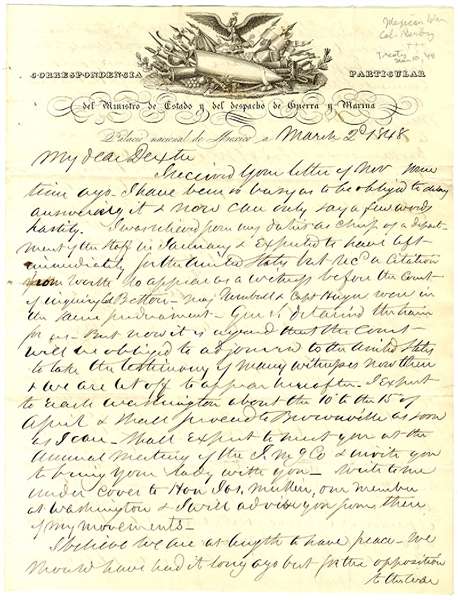 Mexican War
Col. Kirby
Treaty
CORRESPONDENCIA PARTICULAR
del Ministro de Estado y del despacho de Guerra y Marina
Palacio nacional de Mexico a March 2d 1848
My dear Dexter
I received your letter of Nov. some
time ago. I have been so busy as to be obliged to delay
answering it & now can only say a few words
hastily. I was relieved from my duties as Chief of a depart-
ment of the Staff in January & expected to have left
immediately for the United States but recd a Citation
from Worth to appear as a witness before the Court
of inquiry. Maj Turnbull & Capt were in
the same predicament - Genl detained the train
for us - But now it is agreed that the Court
will be obliged to adjourn to the United States
to take the testimony of many witnesses now there
& we are let off to appear hereafter. I expect
to reach Washington about the 10th to the 15 of
April & shall proceed to Brownville as soon
as I can - Shall expect to meet you at the
Annual Meeting of the Co & invite you
to bring your lady with you - write to me
under cover to Hon Jos. Mullin, our member
at Washington & I will advise you from there
of my movements -
I believe we are at length to have peace - We
would have had it long ago but for the opposition
to the war